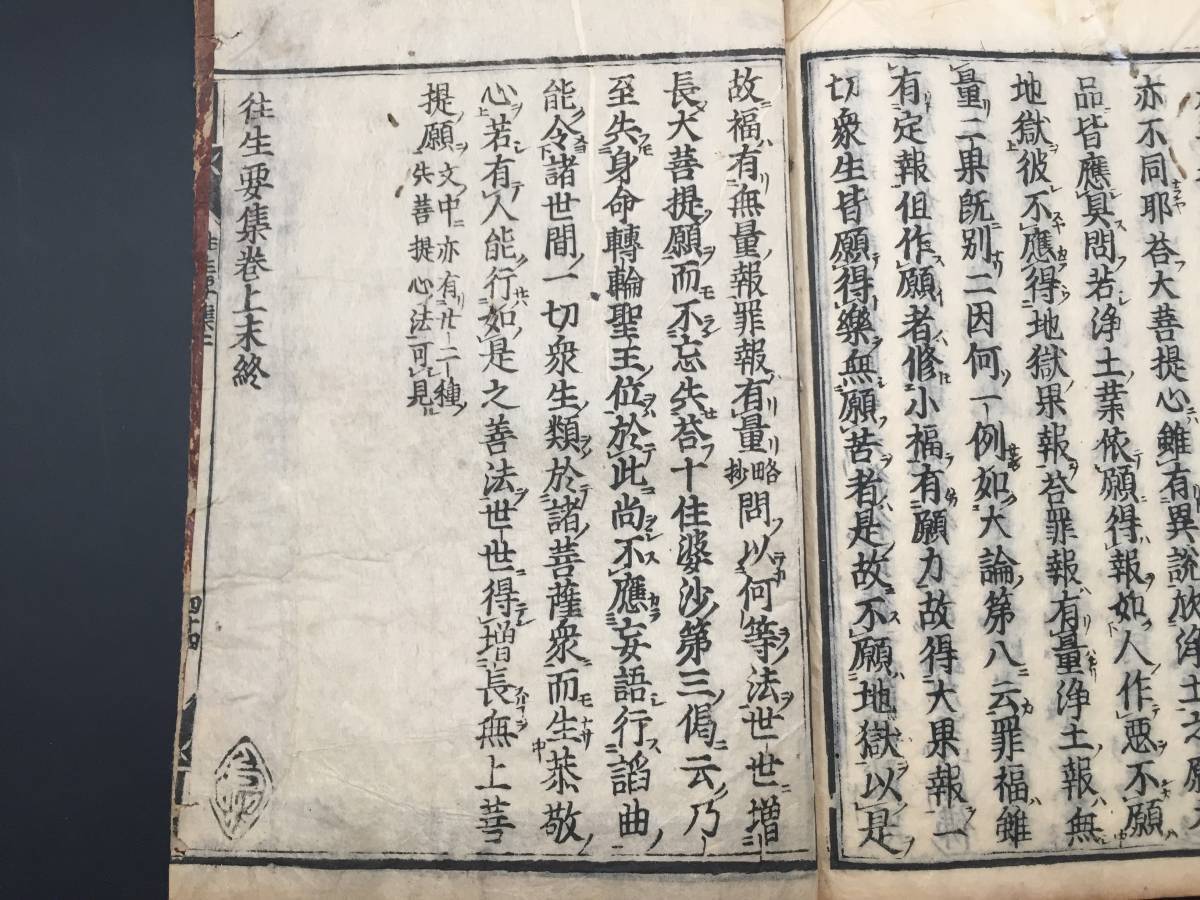 亦不同耶荅大菩提心雖有異說放淨土之願
品皆應具問若淨土業依願得報如人作惡不願
地獄彼不應得地獄果報荅罪報有量淨土報無
量二果旣別二因何一例如大論第八云罪福雖
有定報但作願者修小福有願力故得大果報一
切衆生皆願得樂無願苦者是故不願地獄以是
故福有無量報罪報有量略抄問以何等法世世增
長大菩提願而不忘失荅十住婆沙第三偈云乃
至失身命轉輪聖王位於此尚不應妄語行諂曲
能令諸世間一切衆生類於諸菩薩衆而生恭敬
心若有人能行如是之善法世世得增長無上菩
提願文中亦有廿二種失菩提心法可見
往生要集卷上末終
四十四